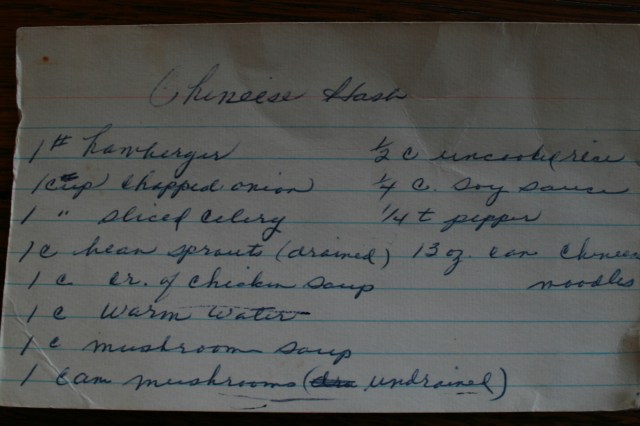 Chineese Hash
1# hamberger ½ c uncooked rice
1 cup chopped onion ¼ c. soy sauce
1 " sliced celery ¼ t pepper
1 c bean sprouts (drained) 13 oz. can Chinees
1 c cr. of chicken soup noodles
1 c warm water
1 c mushroom soup
1 can mushrooms (undrained)